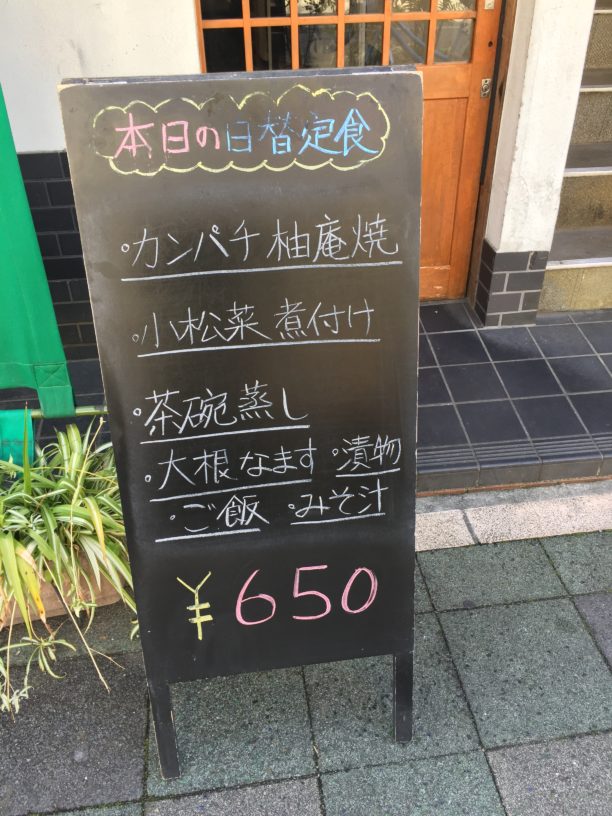 本日の日替定食
・カンパチ柚庵焼
・小松菜煮付け
・茶碗蒸し
・大根なます ・漬物
・ご飯 ・みそ汁
¥650